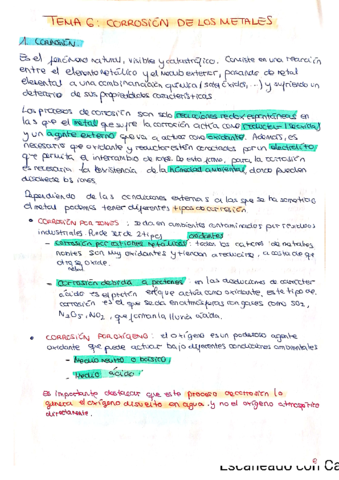 TEMA 6: CORROSIÓN DE LOS METALES
1. CORROSIÓN.
Es el fenómeno natural, visible y catastrófico. Consiste en una reacción
entre el elemento metálico y el medio exterior, pasando de metal
elemental a una combinación química (sales, óxidos, ...) y sufriendo un
deterioro de sus propiedades características
Los procesos de corrosión son solo reacciones redox espontáneas en
las que el metal que sufre la corrosión actúa como reductor (se oxida)
y un agente externo que va a actuar como oxidante. Además, es
necesario que oxidante y reductor estén conectados por un electrolito
que permita el intercambio de iones. De esta forma, para la corrosión
es necesaria la existencia de la humedad ambiental, donde pueden
disolverse los iones.
Dependiendo de las condiciones externas a las que se ha sometido
el metal podemos tener diferentes tipos de corrosión
• CORROSIÓN POR IONES: se da en ambientes contaminados por residuos
industriales. Puede ser de 2 tipos
oxidantes
- Corrosión por cationes metálicos: todos los cationes de metales
nobles son muy oxidantes y tienden a reducirse, a costa de que
otro se oxide.
metal
- Corrosión debida a protones: en las disoluciones de carácter
ácido es el protón el que actúa como oxidante, este tipo de
corrosión es el que se da en atmósferas con gases como SO2,
N2O5, NO2, que forman la lluvia ácida.
• CORROSIÓN POR OXÍGENO: el oxígeno es un poderoso agente
oxidante que puede actuar bajo diferentes condiciones ambientales
- Medio neutro o básico:
- Medio ácido:
Es importante destacar que este proceso de corrosión lo
genera el oxígeno disuelto en agua y no el oxígeno atmosférico
directamente.
Escaneado con Ca